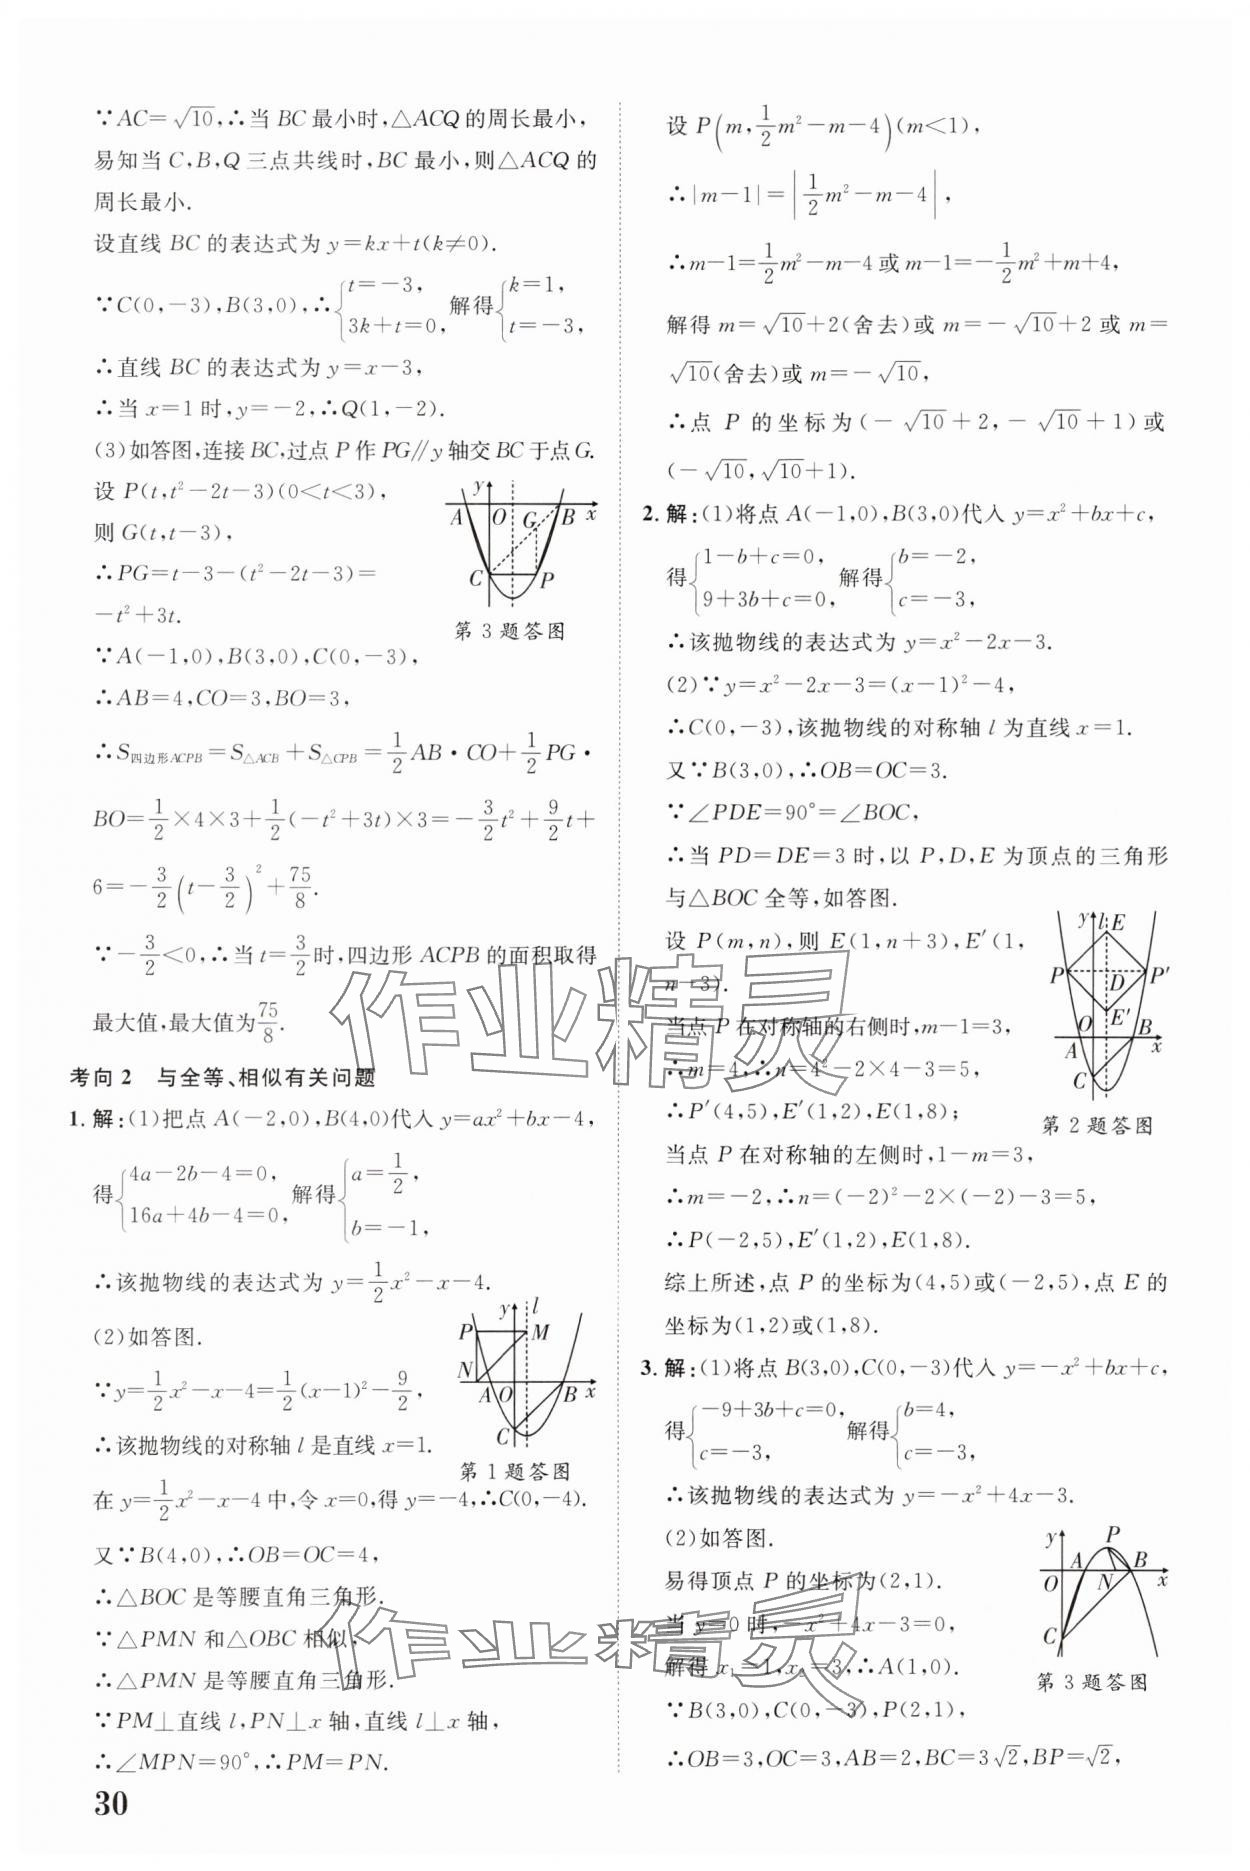 ∵AC=√10,∴当BC最小时,△ACQ的周长最小,
易知当C,B,Q三点共线时,BC最小,则△ACQ的
周长最小.
设直线BC的表达式为y=kx+t(k≠0).
∵C(0,-3),B(3,0),∴{t=-3, 3k+t=0, 解得{k=1, t=-3,
∴直线BC的表达式为y=x-3,
∴当x=1时,y=-2,∴Q(1,-2).
(3)如答图,连接BC,过点P作PG∥y轴交BC于点G.
设P(t,t²-2t-3)(0<t<3),
则G(t,t-3),
∴PG=t-3-(t²-2t-3)=
-t²+3t.
y A O G B x C P
第3题答图
∵A(-1,0),B(3,0),C(0,-3),
∴AB=4,CO=3,BO=3,
∴S四边形ACPB=S△ACB+S△CPB=1/2AB·CO+1/2PG·
BO=1/2×4×3+1/2(-t²+3t)×3=-3/2t²+9/2t+
6=-3/2(t-3/2)²+75/8.
∵-3/2<0,∴当t=3/2时,四边形ACPB的面积取得
最大值,最大值为75/8.
考向2 与全等、相似有关问题
1.解:(1)把点A(-2,0),B(4,0)代入y=ax²+bx-4,
得{4a-2b-4=0, 16a+4b-4=0, 解得{a=1/2, b=-1,
∴该抛物线的表达式为y=1/2x²-x-4.
(2)如答图.
∵y=1/2x²-x-4=1/2(x-1)²-9/2,
∴该抛物线的对称轴l是直线x=1.
y l P M N A O B x C
第1题答图
在y=1/2x²-x-4中,令x=0,得y=-4,∴C(0,-4).
又∵B(4,0),∴OB=OC=4,
∴△BOC是等腰直角三角形.
∵△PMN和△OBC相似,
∴△PMN是等腰直角三角形.
∵PM⊥直线l,PN⊥x轴,直线l⊥x轴,
∴∠MPN=90°,∴PM=PN.
30
设P(m,1/2m²-m-4)(m<1),
∴|m-1|=|1/2m²-m-4|,
∴m-1=1/2m²-m-4或m-1=-1/2m²+m+4,
解得m=√10+2(舍去)或m=-√10+2或m=
√10(舍去)或m=-√10,
∴点P的坐标为(-√10+2,-√10+1)或
(-√10,√10+1).
2.解:(1)将点A(-1,0),B(3,0)代入y=x²+bx+c,
得{1-b+c=0, 9+3b+c=0, 解得{b=-2, c=-3,
∴该抛物线的表达式为y=x²-2x-3.
(2)∵y=x²-2x-3=(x-1)²-4,
∴C(0,-3),该抛物线的对称轴l为直线x=1.
又∵B(3,0),∴OB=OC=3.
∵∠PDE=90°=∠BOC,
∴当PD=DE=3时,以P,D,E为顶点的三角形
与△BOC全等,如答图.
设P(m,n),则E(1,n+3),E′(1,
n-3).
当点P在对称轴的右侧时,m-1=3,
∴m=4,∴n=4²-2×4-3=5,
∴P′(4,5),E′(1,2),E(1,8);
y l E P D P′ O E′ B A x C
第2题答图
当点P在对称轴的左侧时,1-m=3,
∴m=-2,∴n=(-2)²-2×(-2)-3=5,
∴P(-2,5),E′(1,2),E(1,8).
综上所述,点P的坐标为(4,5)或(-2,5),点E的
坐标为(1,2)或(1,8).
3.解:(1)将点B(3,0),C(0,-3)代入y=-x²+bx+c,
得{-9+3b+c=0, c=-3, 解得{b=4, c=-3,
∴该抛物线的表达式为y=-x²+4x-3.
(2)如答图.
易得顶点P的坐标为(2,1).
当y=0时,-x²+4x-3=0,
解得x₁=1,x₂=3,∴A(1,0).
y P A B O N x C
第3题答图
∵B(3,0),C(0,-3),P(2,1),
∴OB=3,OC=3,AB=2,BC=3√2,BP=√2,
作业精灵
作业精灵